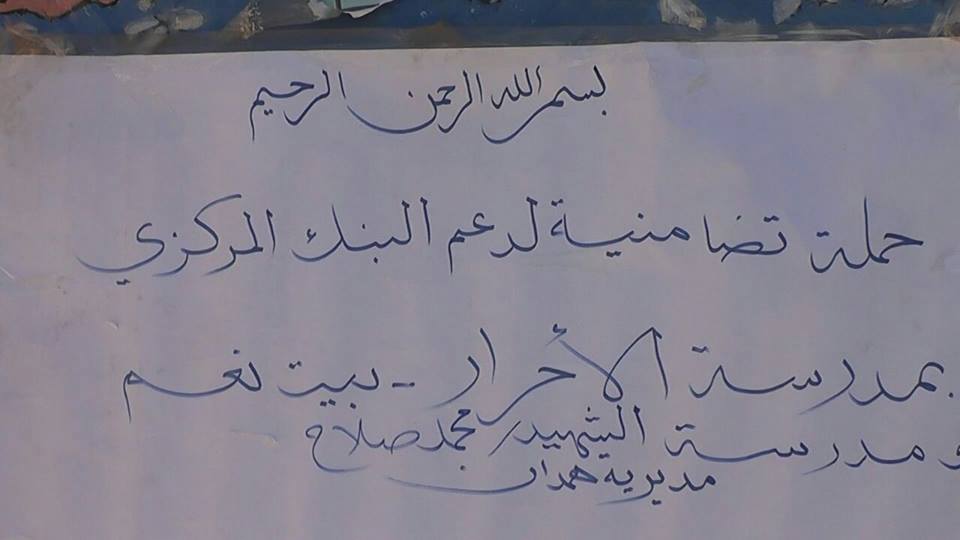 بسم الله الرحمن الرحيم
حملة تضامنية لدعم البنك المركزي
بمدرسة الأحرار - بيت نعم
و مدرسة الشهيد محمد صلاح
مديرية همدان